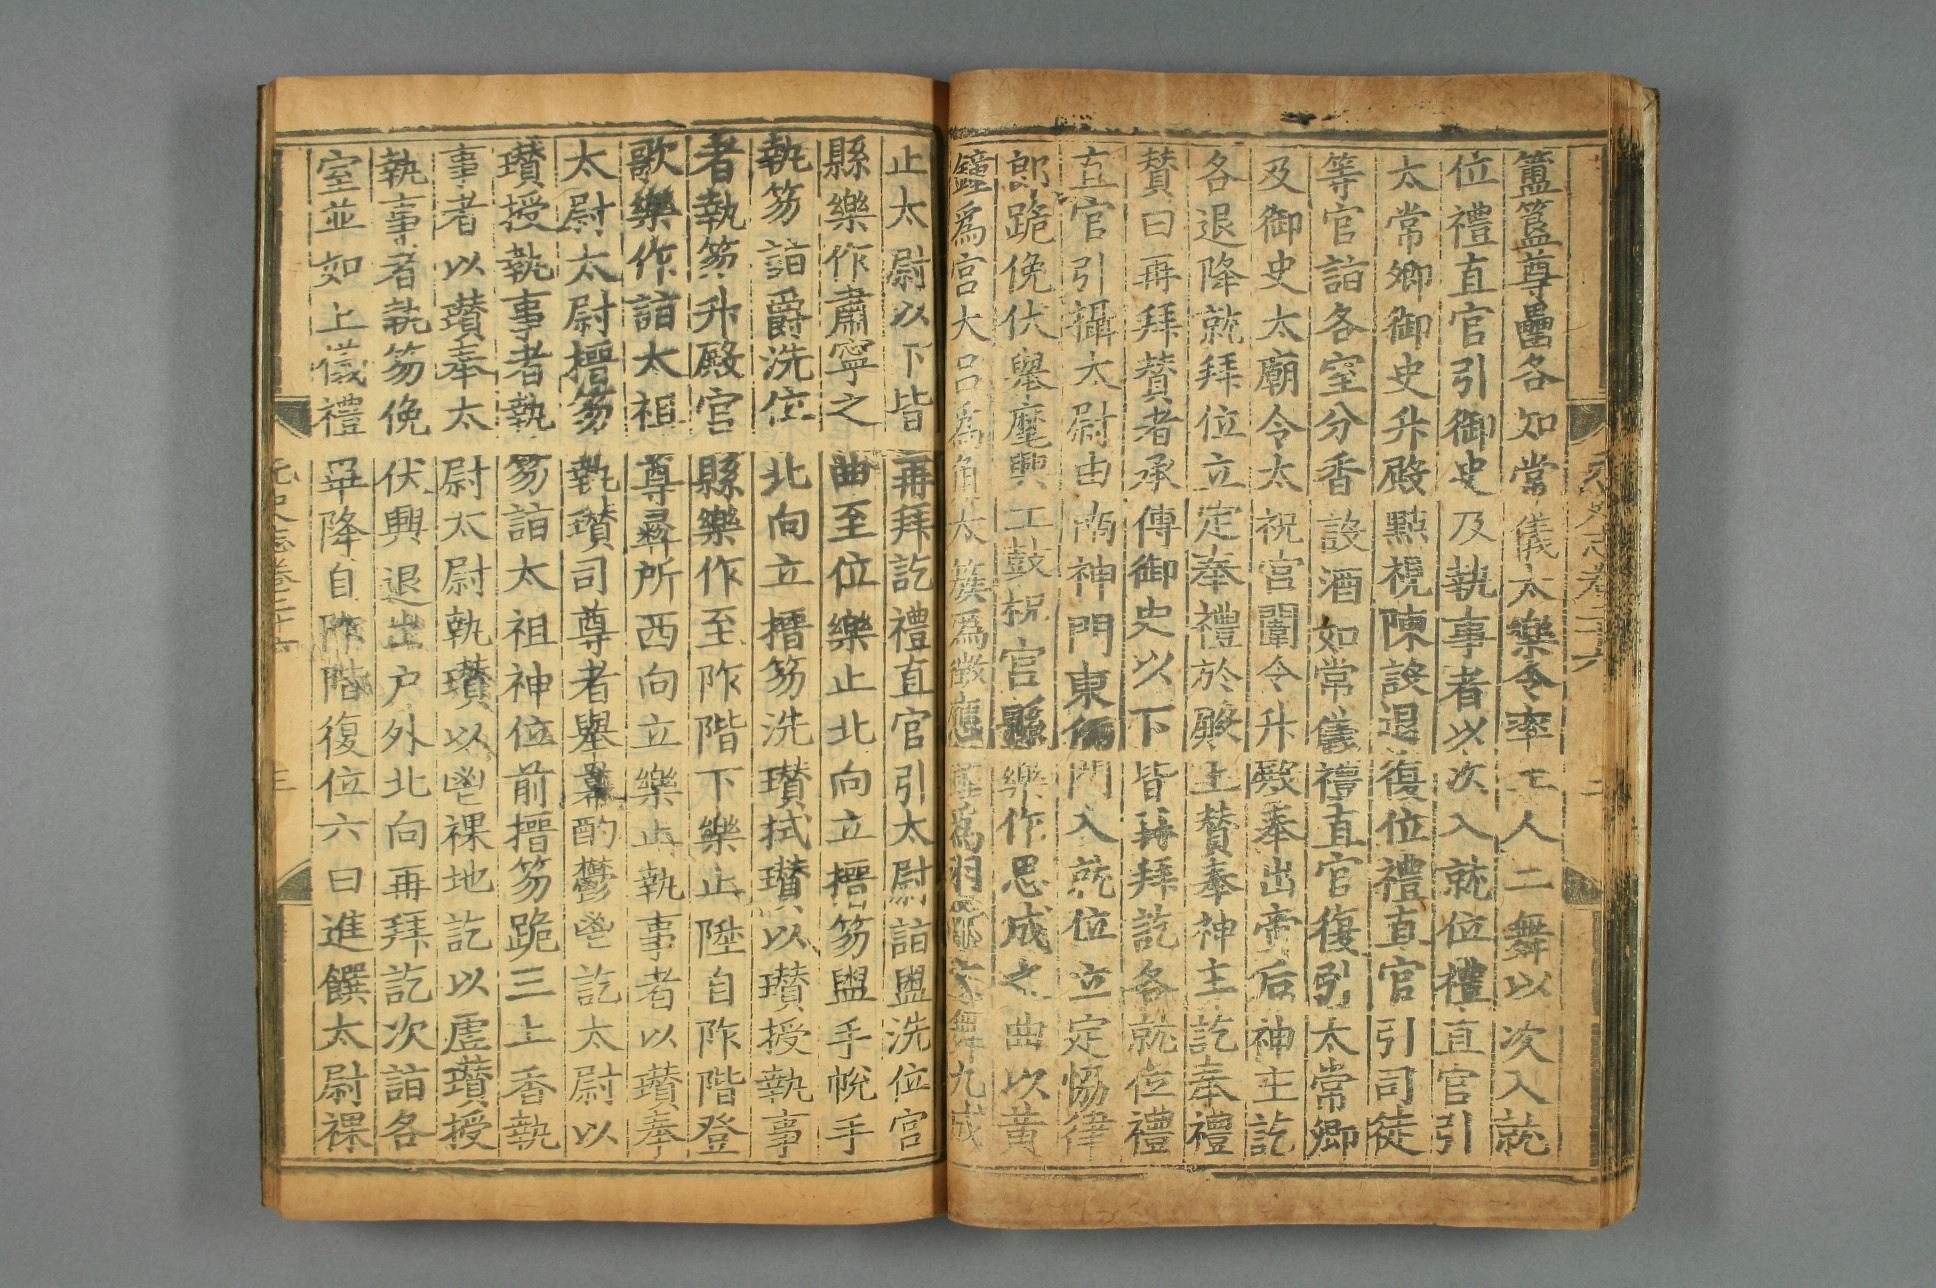 簠簋尊罍各如常儀太樂令率工人二舞以次入就
位禮直官引御史及執事者以次入就位禮直官引
太常卿御史升殿點視陳設退復位禮直官引司徒
等官詣各室分香設酒如常儀禮直官復引太常卿
及御史太廟令太祝宮闈令升殿奉出帝后神主訖
各退降就拜位立定奉禮於殿上贊奉神主訖奉禮
贊曰再拜贊者承傳御史以下皆再拜訖各就位禮
直官引攝太尉由南神門東偏門入就位立定恊律
郎跪俛伏舉麾興工鼓柷宮縣樂作思成之曲以黃
鐘爲宮大呂爲角太簇爲徵應鐘爲羽 文舞九成
止太尉以下皆再拜訖禮直官引太尉詣盥洗位宮
縣樂作肅寧之曲至位樂止北向立搢笏盥手帨手
執笏詣爵洗位北向立搢笏洗瓚拭瓚以瓚授執事
者執笏升殿宮縣樂作至阼階下樂止陞自阼階登
歌樂作詣太祖尊彝所西向立樂止執事者以瓚奉
太尉太尉搢笏執瓚司尊者舉冪酌鬱鬯訖太尉以
瓚授執事者執笏詣太祖神位前搢笏跪三上香執
事者以瓚奉太尉太尉執瓚以鬯祼地訖以虛瓚授
執事者執笏俛伏興退出戶外北向再拜訖次詣各
室並如上儀禮畢降自阼階復位六曰進饌太尉祼
元史志卷二十六
三